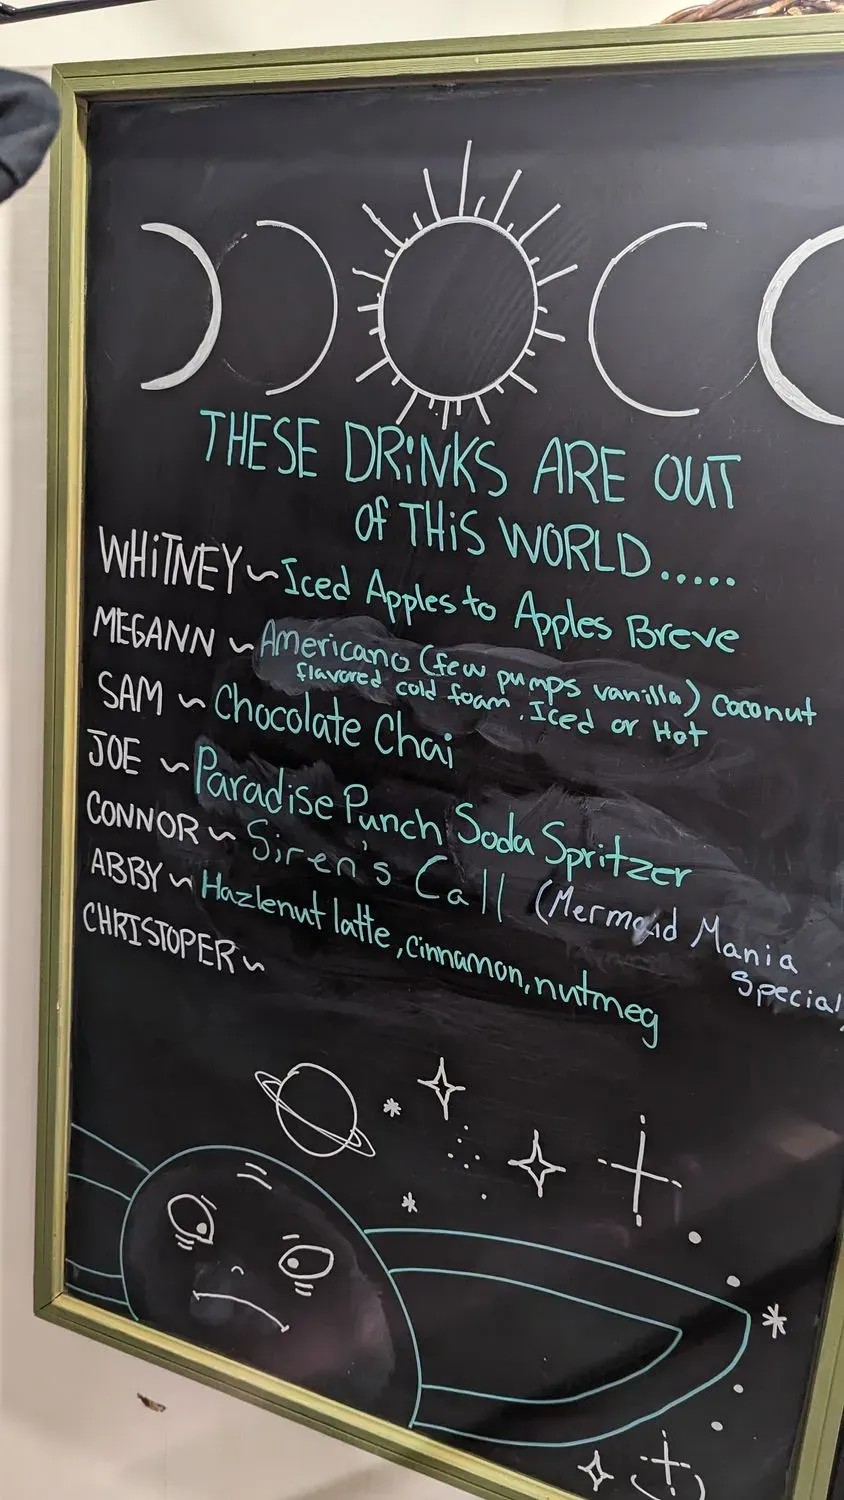 THESE DRiNKS ARE OUT
of THiS WORLD.....
WHiTNEY ~ Iced Apples to Apples Breve
MEGANN ~ Americano (few pumps vanilla) coconut
flavored cold foam. Iced or Hot
SAM ~ Chocolate Chai
JOE ~ Paradise Punch Soda Spritzer
CONNOR ~ Siren's Call (Mermaid Mania
Special)
ABBY ~ Hazlenut latte, cinnamon, nutmeg
CHRISTOPER ~